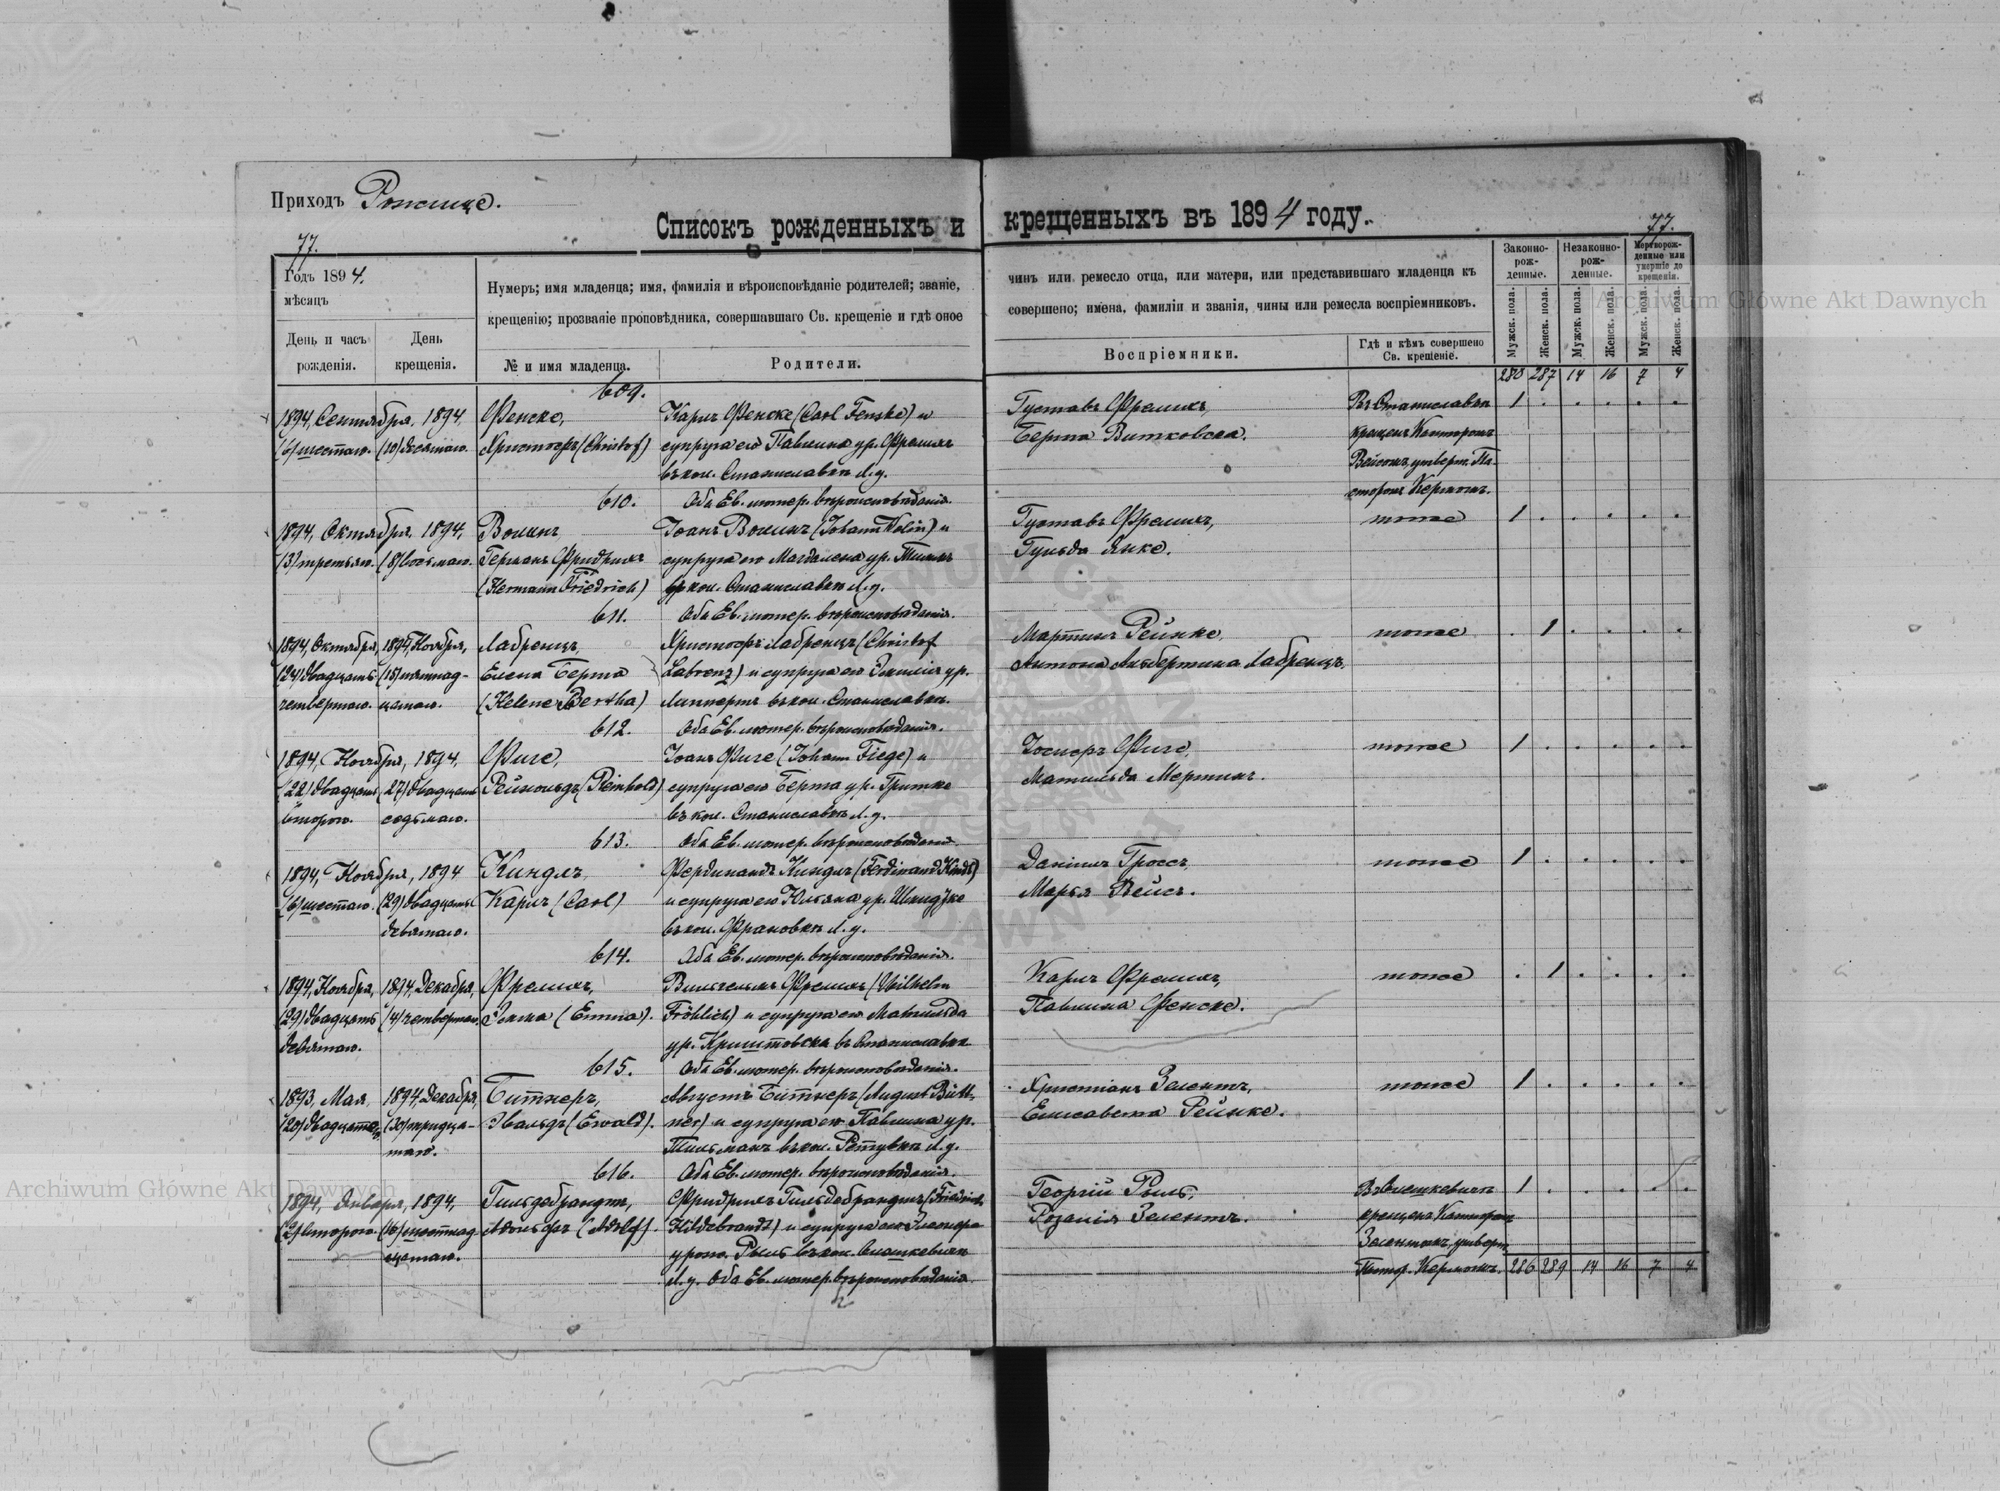 Приходъ Рожище.
Списокъ рожденныхъ и крещенныхъ въ 1894 году.
77.
77.
Годъ 1894.
мѣсяцъ
День и часъ рожденія.
День крещенія.
Нумеръ; имя младенца; имя, фамилія и вѣроисповѣданіе родителей; званіе,
чинъ или ремесло отца, или матери, или представившаго младенца къ
крещенію; прозваніе проповѣдника, совершавшаго Св. крещеніе и гдѣ оное
совершено; имена, фамиліи и званія, чины или ремесла воспріемниковъ.
№ и имя младенца.
Родители.
Воспріемники.
Гдѣ и кѣмъ совершено Св. крещеніе.
Законно-рож-денные.
Незаконно-рож-денные.
Мертворож-денные или умершіе до крещенія.
Мужск. пола.
Женск. пола.
Мужск. пола.
Женск. пола.
Мужск. пола.
Женск. пола.
280 287 14 16 7 4
609.
1894, Сентября, 1894,
(6) шестаго. (10) десятаго.
Фенске,
Христофъ (Christof)
Карлъ Фенске (Carl Fenske) и
супруга его Павлина ур. Фрелихъ
въ кол. Станиславкѣ Л. у.
Оба Ев. лютер. вѣроисповѣданія.
Густавъ Фрелихъ,
Берта Витковска.
Въ Станиславкѣ
крещенъ Канторомъ
Вейсомъ, утверт. Па-
сторомъ Кермомъ.
1 . . . . .
610.
1894, Октября, 1894,
(3) третьяго. (8) восьмаго.
Волинъ
Германъ Фридрихъ
(Hermann Friedrich)
Іоанъ Волинъ (Johann Wolin) и
супруга его Магдалена ур. Тимъ
въ кол. Станиславкѣ Л. у.
Оба Ев. лютер. вѣроисповѣданія.
Густавъ Фрелихъ,
Гульда Янке.
тоже
1 . . . . .
611.
1894, Октября, 1894, Ноября,
(24) двадцать (15) пятнад-
четвертаго. цатаго.
Лабренцъ,
Елена Берта
(Helene Bertha)
Христофъ Лабренцъ (Christof
Labrenz) и супруга его Эмилія ур.
Липпертъ въ кол. Станиславкѣ.
Оба Ев. лютер. вѣроисповѣданія.
Мартинъ Рейнке,
Антона Альбертина Лабренцъ.
тоже
. 1 . . . .
612.
1894, Ноября, 1894,
(22) двадцать (27) двадцать
втораго. седьмаго.
Фиге,
Рейнольдъ (Reinhold)
Іоанъ Фиге (Johann Fiege) и
супруга его Берта ур. Гритке
въ кол. Станиславкѣ Л. у.
Оба Ев. лютер. вѣроисповѣданія
Іосифъ Фиге,
Матильда Мертинъ.
тоже
1 . . . . .
613.
1894, Ноября, 1894
(6) шестаго. (29) двадцать
девятаго.
Киндлъ,
Карлъ (Carl)
Фердинандъ Киндлъ (Ferdinand Kindl)
и супруга его Юльяна ур. Шмидтке
въ кол. Франовкѣ Л. у.
Оба Ев. лютер. вѣроисповѣданія.
Даніилъ Гроссъ,
Марья Вейсъ.
тоже
1 . . . . .
614.
1894, Ноября, 1894, Декабря,
(29) двадцать (4) четвертаго.
девятаго.
Фрелихъ,
Эмма (Emma).
Вильгельмъ Фрелихъ (Wilhelm
Fröhlich) и супруга его Матильда
ур. Криштовска въ Станиславкѣ
Оба Ев. лютер. вѣроисповѣданія.
Карлъ Фрелихъ,
Павлина Фенске.
тоже
. 1 . . . .
615.
1893, Мая, 1894, Декабря,
(20) двадцатаго, (30) тридца-
таго.
Битнеръ,
Эвальдъ (Ewald).
Августъ Битнеръ (August Bütt-
ner) и супруга его Павлина ур.
Тильманъ въ кол. Ретувкѣ Л. у.
Оба Ев. лютер. вѣроисповѣданія.
Христіанъ Зелентъ,
Елисавета Рейнке.
тоже
1 . . . . .
616.
1894, Января, 1894,
(2) втораго. (16) шестнад-
цатаго.
Гильдебрандтъ,
Адольфъ (Adolf).
Фридрихъ Гильдебрандтъ (Friedrich
Hildebrandt) и супруга его Элеонора
урож. Рыль въ кол.
Л. у. Оба Ев. лютер. вѣроисповѣданія
Георгій Рыль,
Розалія Зелентъ.
крещенъ Канторомъ
Зелентомъ, утверт.
Пастор. Кермомъ.
1 . . . . .
286 289 14 16 7 4
Archiwum Główne Akt Dawnych
Archiwum Główne Akt Dawnych